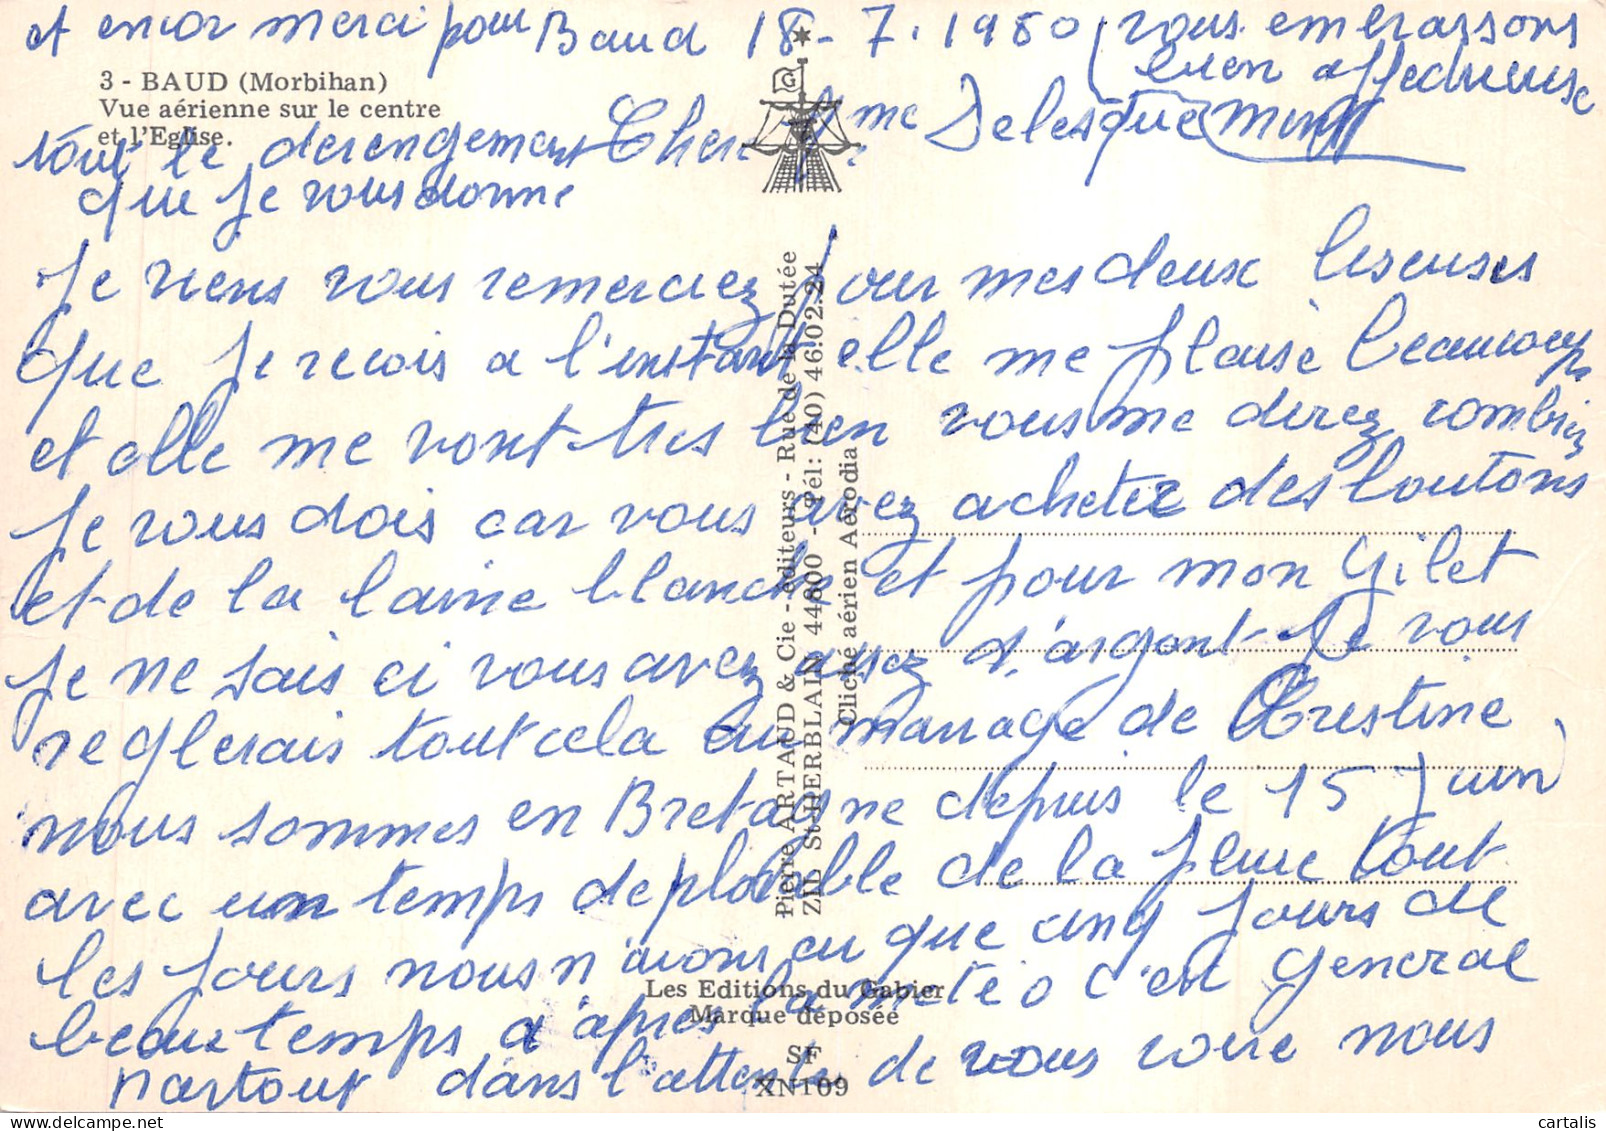 et encor merci pour Baud 18-7.1980 vous embrassons
bien affectueuse
3 - BAUD (Morbihan)
Vue aérienne sur le centre
et l'Eglise.
tout le derengement Chere Mme Delesque ment
que je vous donne
Je viens vous remerciez pour mes deux liseuses
que je recois a l'instant elle me plaise beaucoup
et elle me vont tres bien vous me direz combien
je vous dois car vous avez achetez des boutons
et de la laine blanche et pour mon gilet
je ne sais ci vous avez assez d'argent Je vous
reglerais tout cela au mariage de Crestine
nous sommes en Bretagne depuis le 15 Juin
avec un temps deplorable de la pluie tout
les jours nous n'avons eu que cinq jours de
beau temps d'apres la meteo c'est general
partout dans l'attente de vous voire nous
Pierre ARTAUD & Cie - éditeurs - Rue de la Dutée
ZIL St-HERBLAIN 44800 - Tél: (40) 46.02.24
Cliché aérien Aérodia
Les Editions du Gabier
Marque déposée
SF
XN109
cartalis